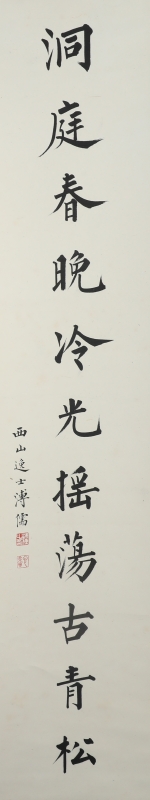 洞庭春晚冷光摇蕩古青松
西山逸士溥儒